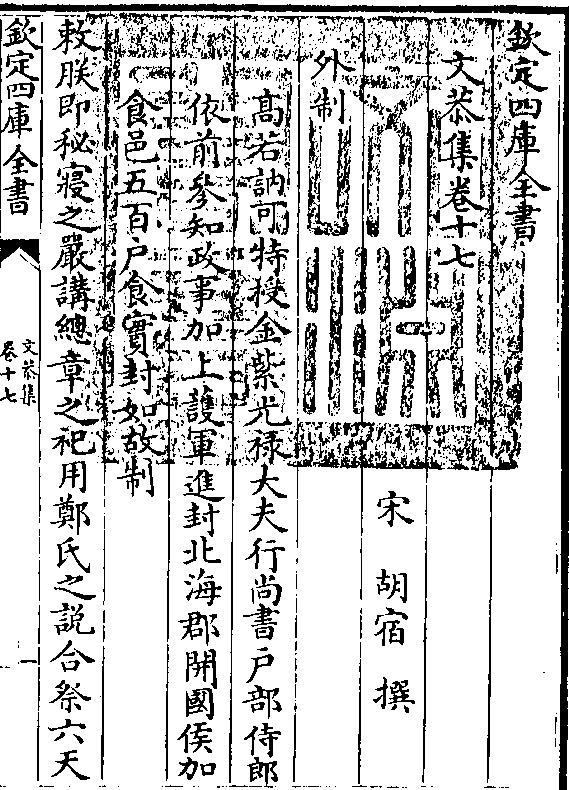 欽定四庫全書
文恭集卷十七
宋 胡宿 撰
外制
髙若訥可特授金紫光禄大夫行尚書户部侍郎
依前參知政事加上護軍進封北海郡開國侯加
食邑五百户食實封如故制
敕朕即秘寢之嚴講總章之祀用鄭氏之説合祭六天
欽定四庫全書
文恭集
卷十七
一